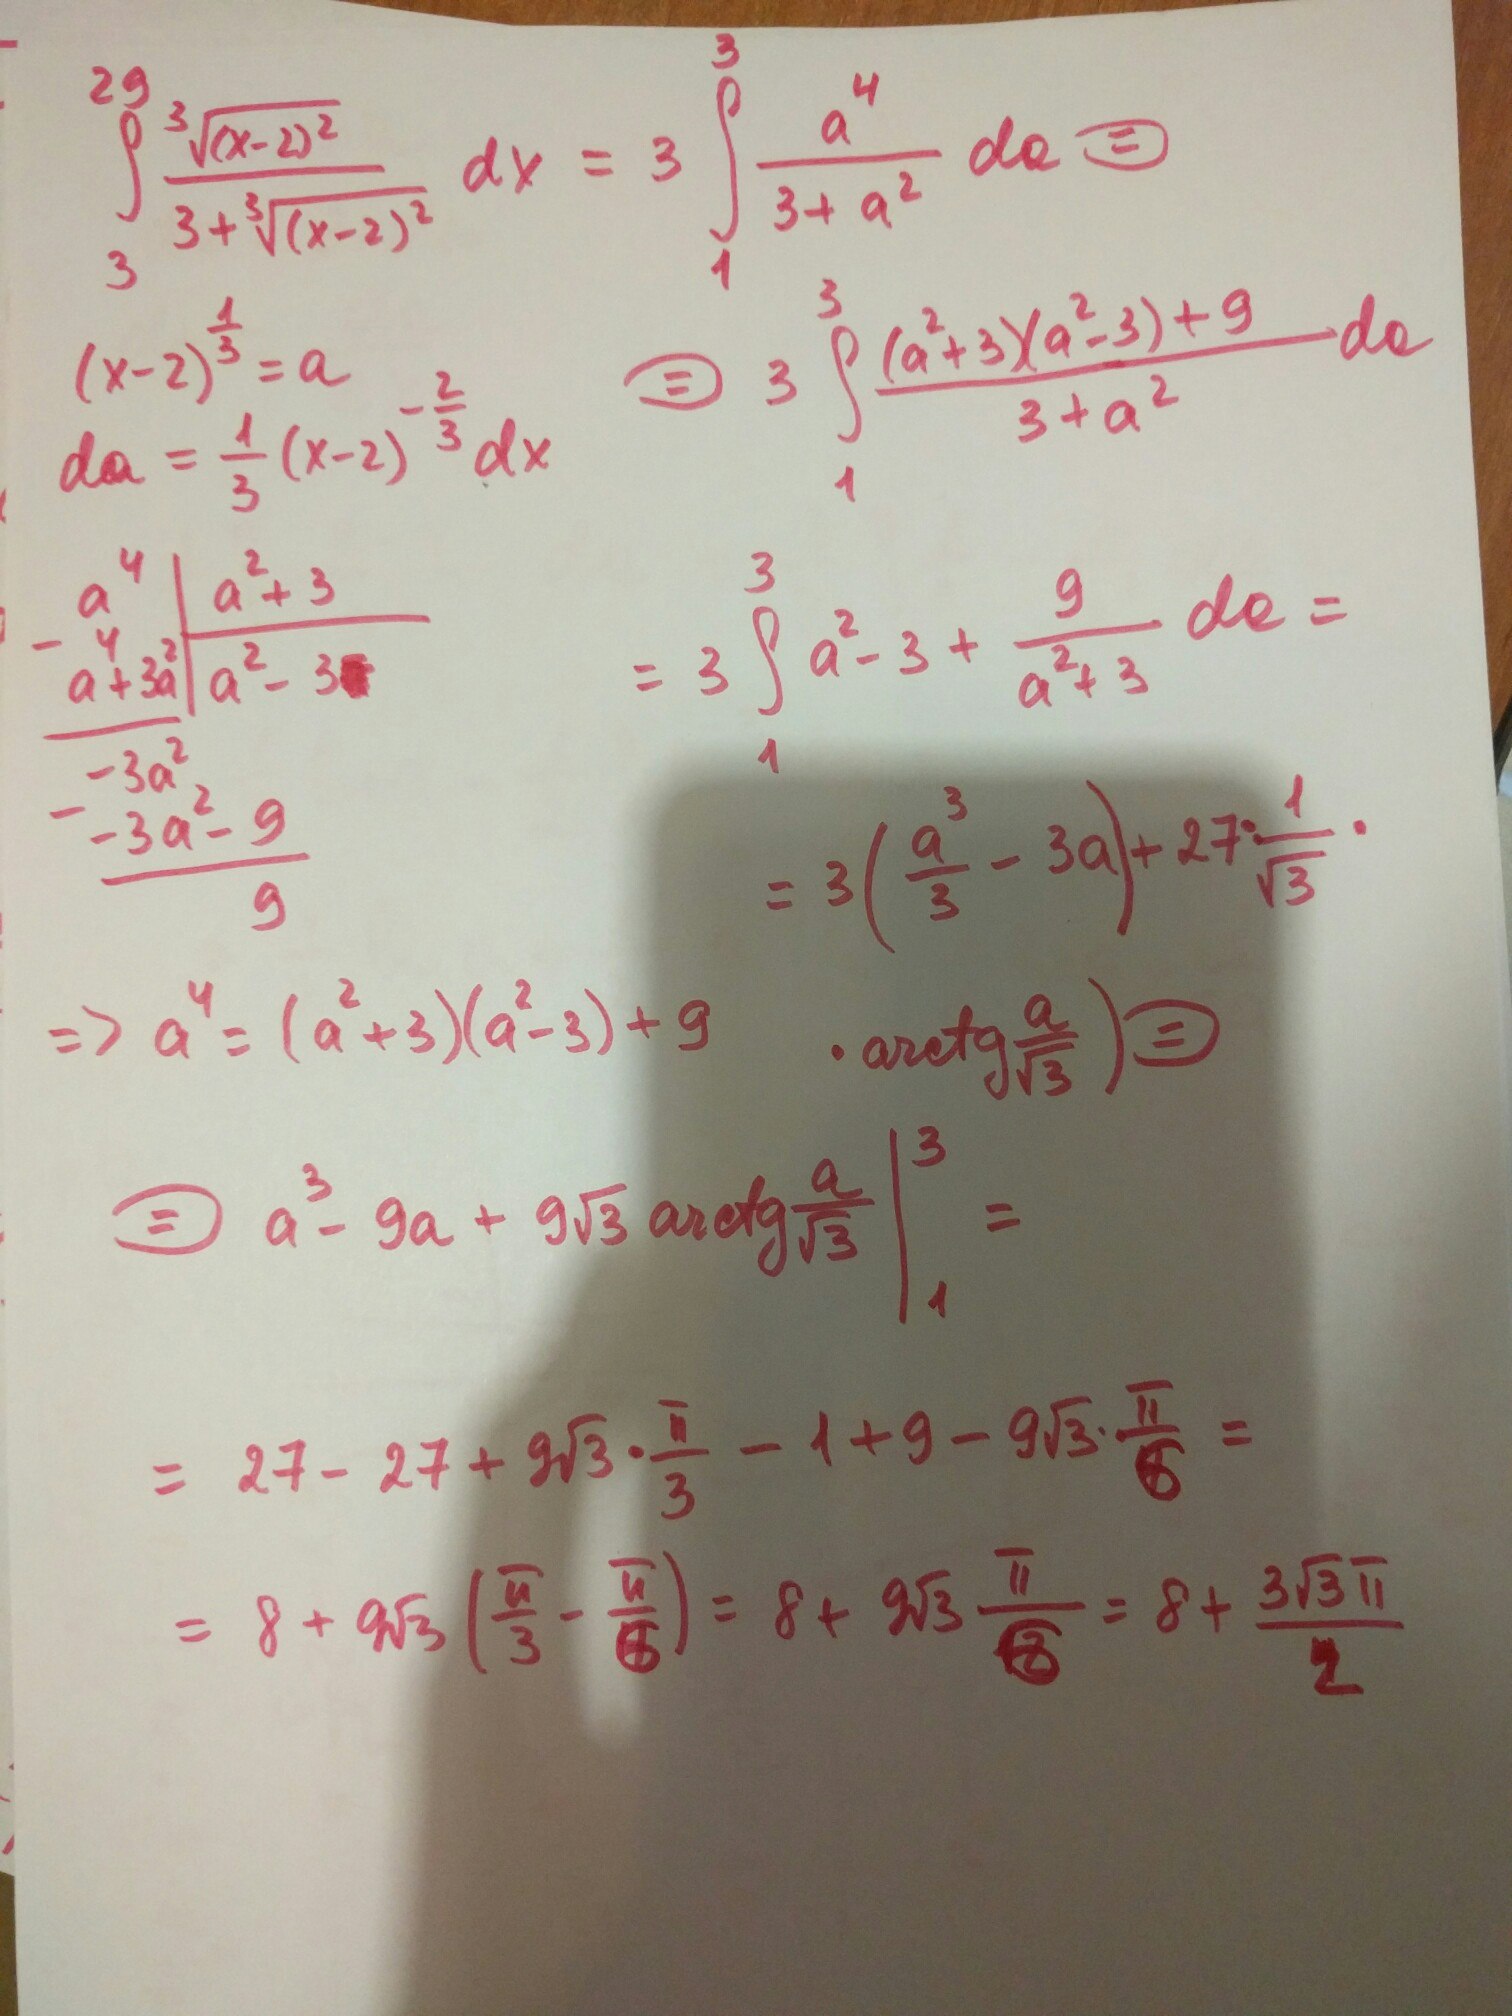 ∫₃²⁹ ∛(x-2)² / (3+∛(x-2)²) dx = 3 ∫₁³ a⁴/(3+a²) da ⊜
(x-2)^(1/3) = a
da = 1/3 (x-2)^(-2/3) dx
⊜ 3 ∫₁³ ((a²+3)(a²-3)+9)/(3+a²) da
a⁴ | a²+3
- a⁴+3a² | a²-3
-3a²
- -3a²-9
9
= 3 ∫₁³ a²-3+ 9/(a²+3) da =
= 3(a³/3 - 3a) + 27·1/√3 ·
=> a⁴ = (a²+3)(a²-3)+9
· arctg a/√3) ⊜
⊜ a³ - 9a + 9√3 arctg a/√3 |₁³ =
= 27 - 27 + 9√3 · π/3 - 1 + 9 - 9√3 · π/6 =
= 8 + 9√3 (π/3 - π/6) = 8 + 9√3 π/6 = 8 + 3√3π/2